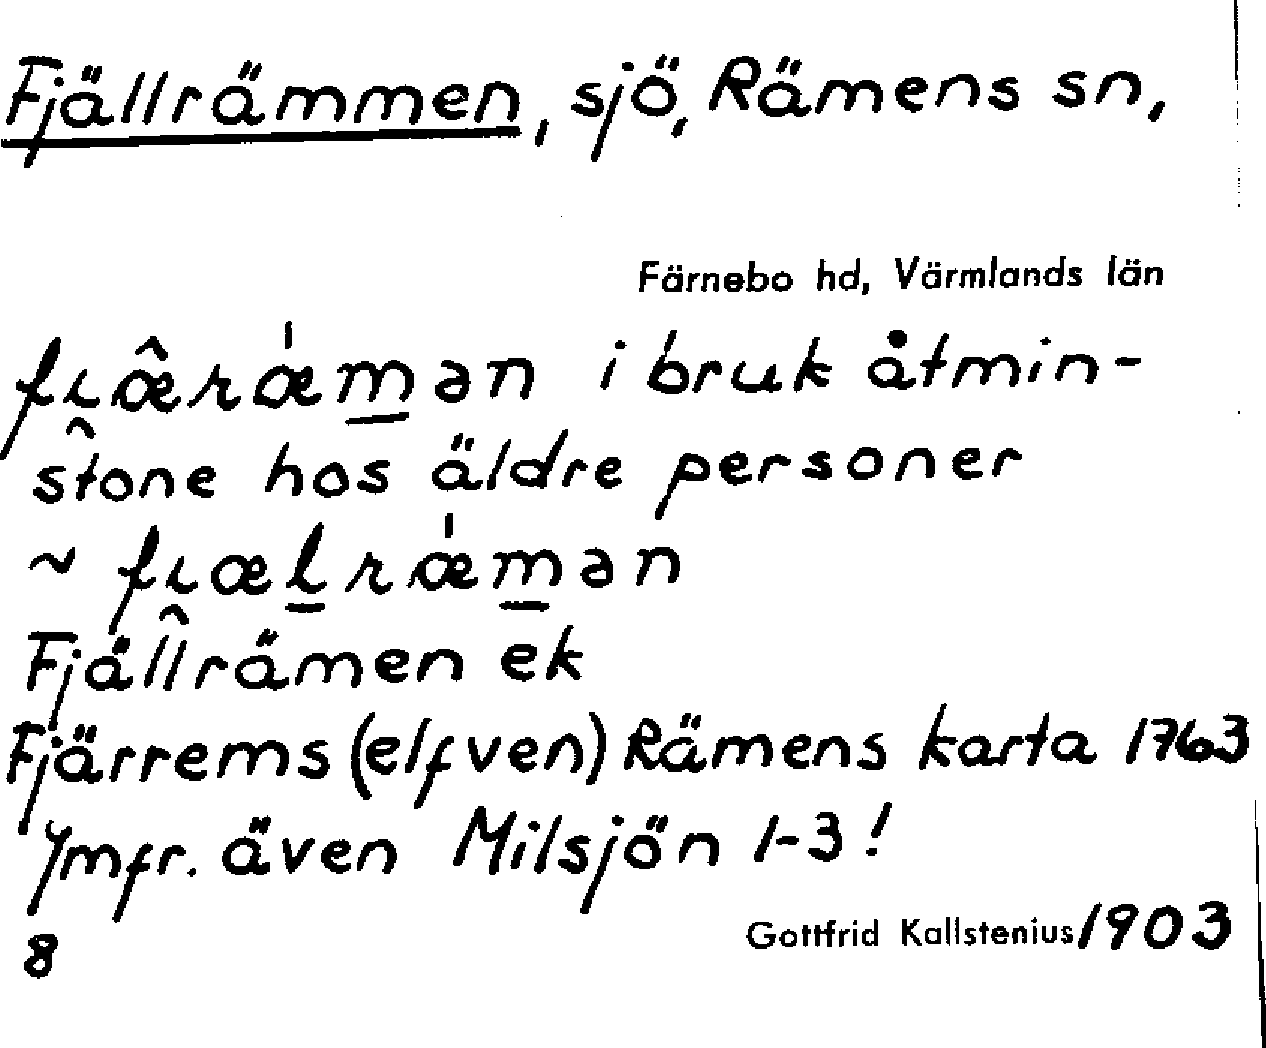 Fjällrämmen, sjö, Rämens sn,
Färnebo hd, Värmlands län
fi̯æ̂ræ̍m̲ən i bruk åtmin-
stone hos äldre personer
~ fi̯æl̲ræ̍m̲ən
Fjällrämen ek
Fjärrems (elfven) Rämens karta 1763
Jmfr. även Milsjön 1-3!
Gottfrid Kallstenius 1903
8